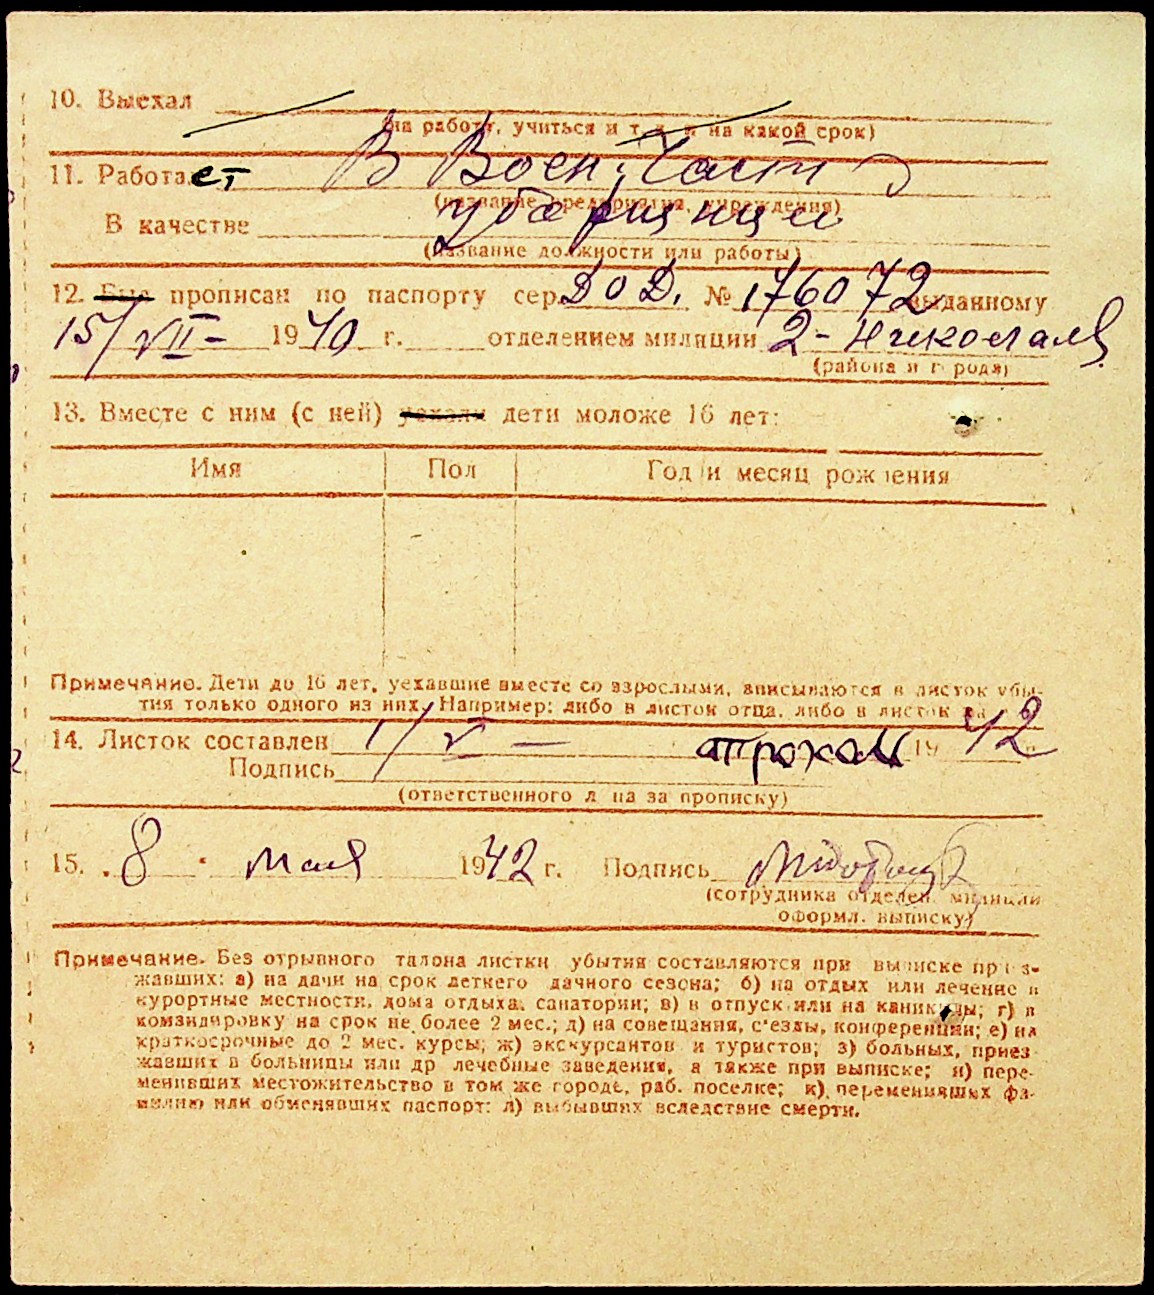 10. Выехал
(на работу, учиться и т. д. и на какой срок)
11. Работает В Воен. Части
(название предприятия, учреждения)
В качестве уборщицей
(название должности или работы)
12. Был прописан по паспорту сер. ДоД. № 176072 выданному
15/VII- 1940 г. отделением милиции 2-Николаев
(района и города)
13. Вместе с ним (с ней) уехали дети моложе 16 лет:
Имя Пол Год и месяц рождения
Примечание. Дети до 16 лет, уехавшие вместе со взрослыми, вписываются в листок убы-
тия только одного из них. Например: либо в листок отца, либо в листок
14. Листок составлен 1/V — 1942
Подпись
(ответственного лица за прописку)
15. 8 мая 1942 г. Подпись
(сотрудника отделен. милиции
оформл. выписку)
Примечание. Без отрывного талона листки убытия составляются при выписке приез-
жавших: а) на дачи на срок летнего дачного сезона; б) на отдых или лечение в
курортные местности, дома отдыха, санатории; в) в отпуск или на каникулы; г) в
командировку на срок не более 2 мес.; д) на совещания, с'езды, конференции; е) на
краткосрочные до 2 мес. курсы; ж) экскурсантов и туристов; з) больных, приез-
жавших в больницы или др лечебные заведения, а также при выписке; и) пере-
менивших местожительство в том же городе, раб. поселке; к) переменивших фа-
милию или обменявших паспорт; л) выбывших вследствие смерти.